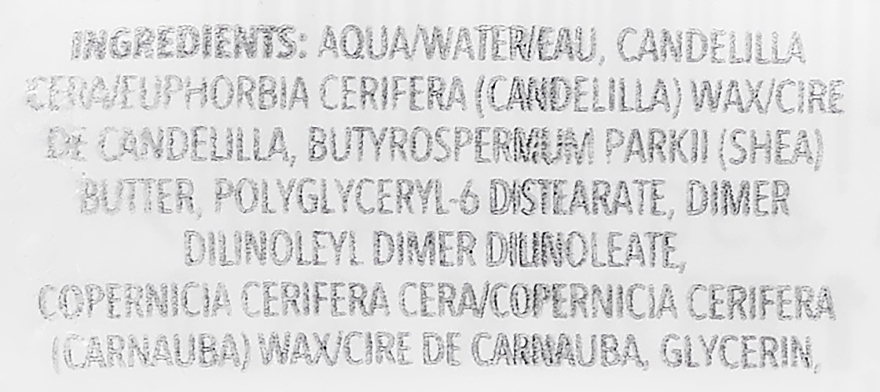 INGREDIENTS: AQUA/WATER/EAU, CANDELILLA
CERA/EUPHORBIA CERIFERA (CANDELILLA) WAX/CIRE
DE CANDELILLA, BUTYROSPERMUM PARKII (SHEA)
BUTTER, POLYGLYCERYL-6 DISTEARATE, DIMER
DILINOLEYL DIMER DILINOLEATE,
COPERNICIA CERIFERA CERA/COPERNICIA CERIFERA
(CARNAUBA) WAX/CIRE DE CARNAUBA, GLYCERIN,